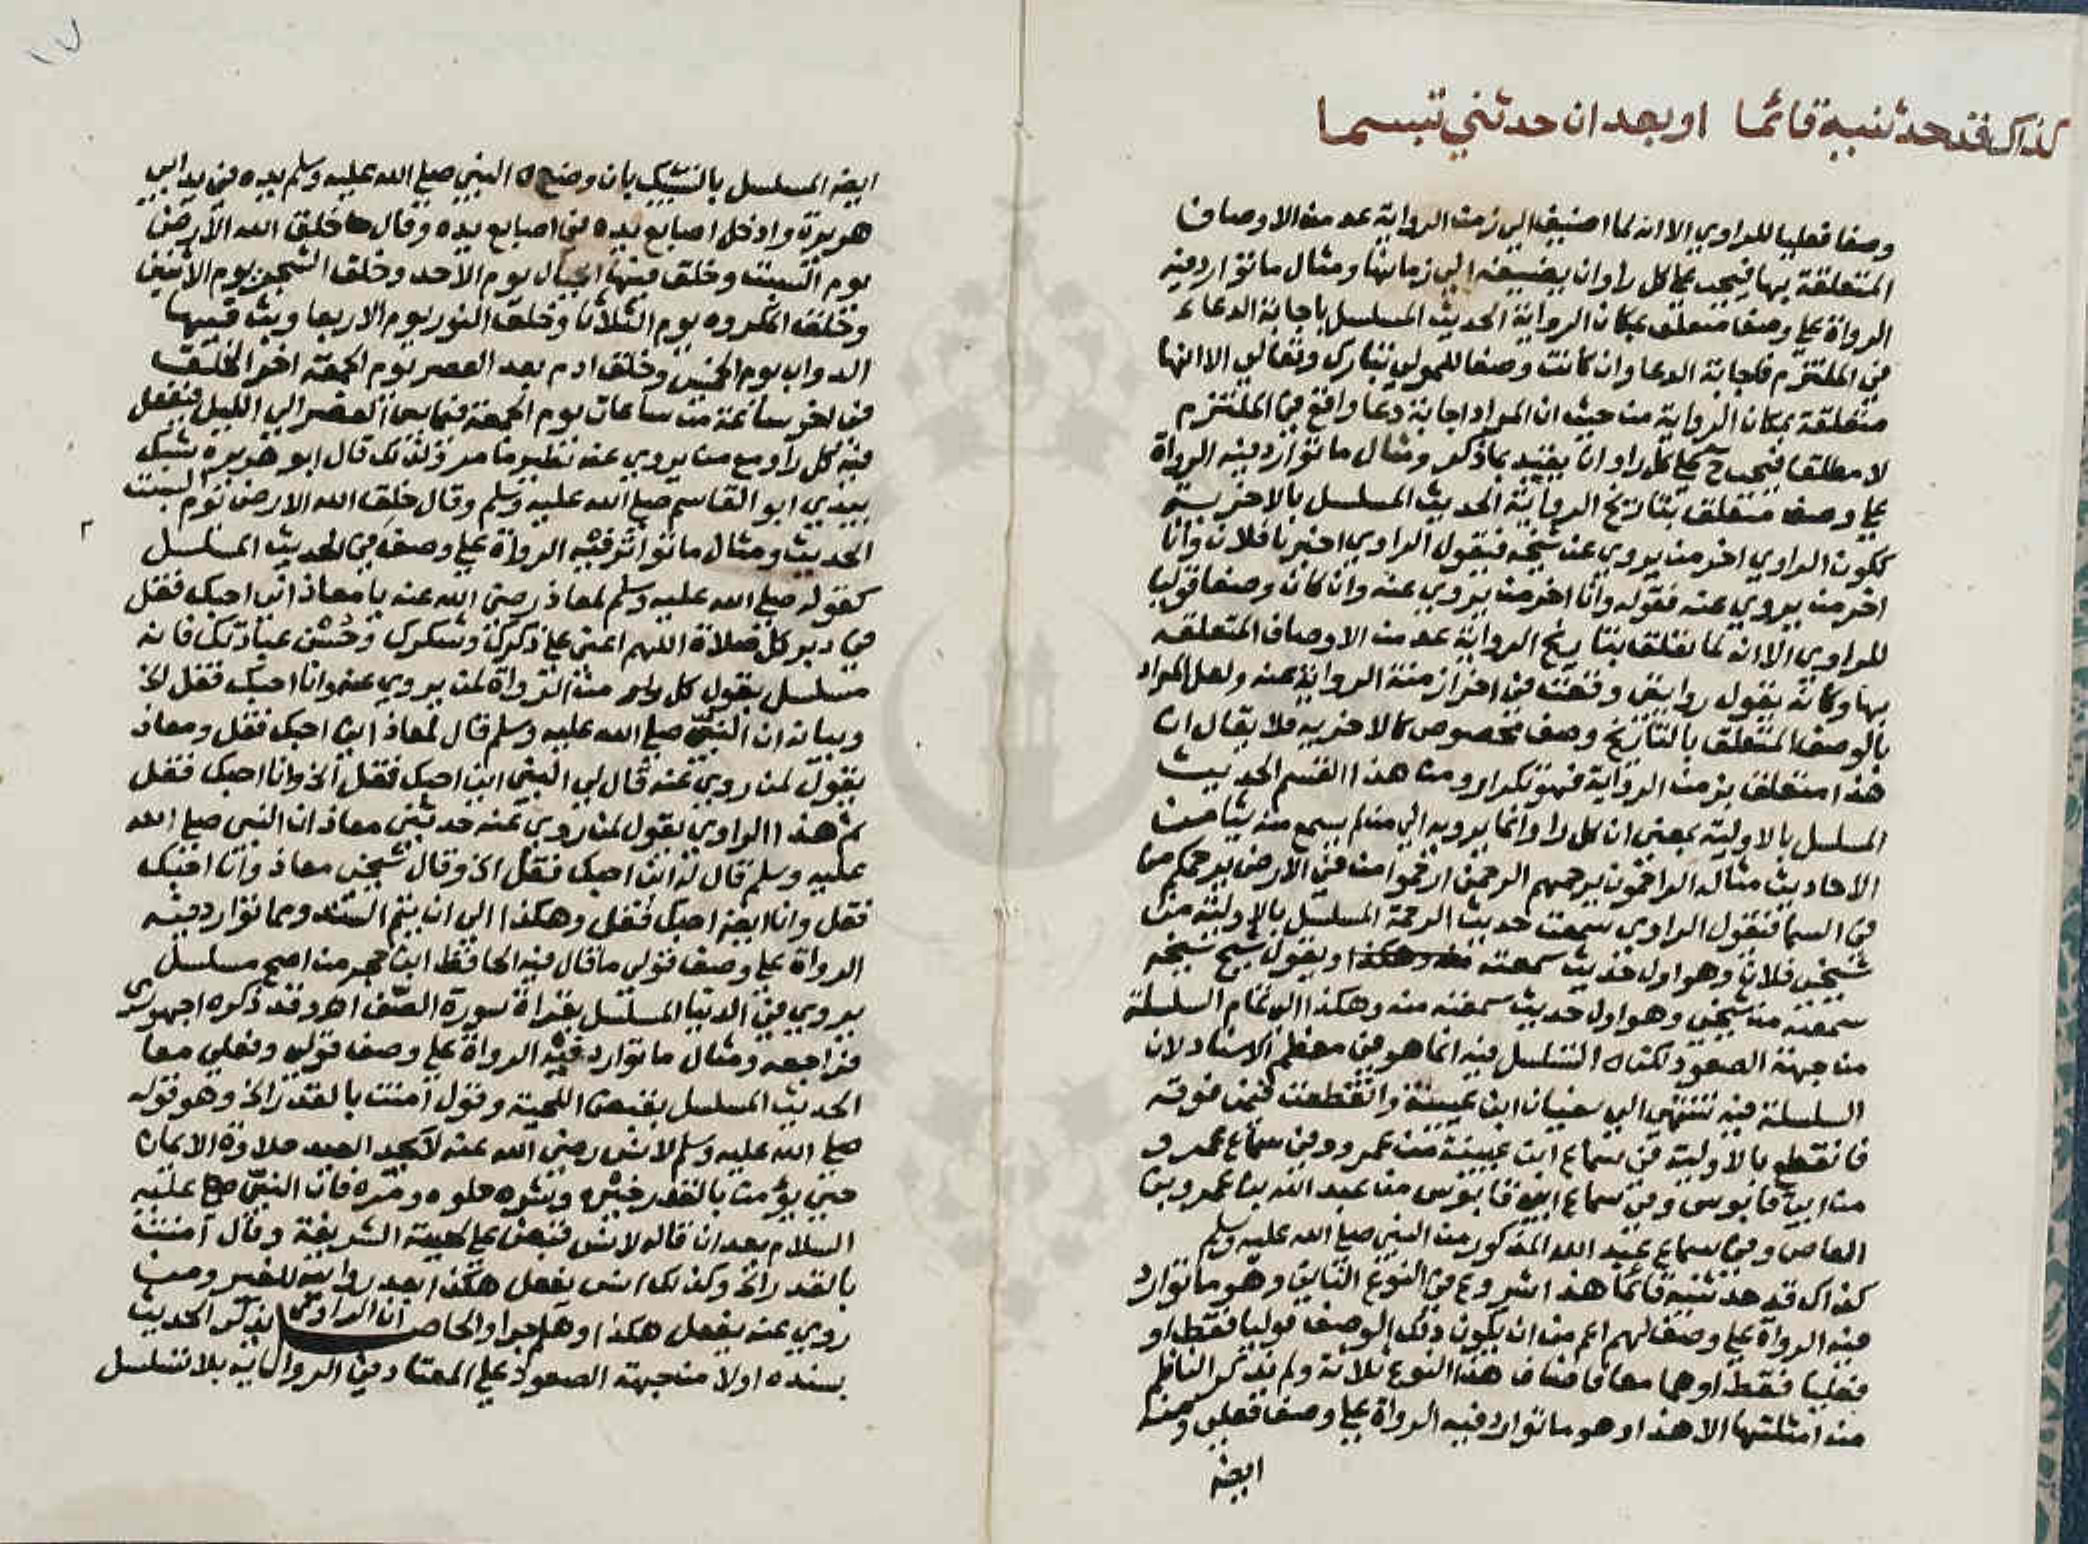 كذاك قد حدثنيه قائما او بعد ان حدثني تبسما
وصفا فعليا للراوي الا انه لما اضيف الي زمن الرواية عد من الاوصاف
المتعلقة بها فيجب علي كل راو ان يضيفه الي زمانها ومثال ما توارد فيه
الرواة علي وصف متعلق بمكان الرواية الحديث المسلسل باجابة الدعاء
في الملتزم فاجابة الدعا وان كانت وصفا للمولي تبارك وتعالي الا انها
متعلقة بمكان الرواية من حيث ان المراد اجابة دعا واقع في الملتزم
لا مطلقا فيجب ح علي كل راو ان يقيد بما ذكر ومثال ما توارد فيه الرواة
علي وصف متعلق بتاريخ الرواية الحديث المسلسل بالاخرية
ككون الراوي اخر من يروي عن شيخه فيقول الراوي اخبرنا فلان وانا
اخر من يروي عنه فقوله وانا اخر من يروي عنه وان كان وصفا قوليا
للراوي الا انه لما تعلق بتاريخ الرواية عد من الاوصاف المتعلقة
بها وكانه يقول روايتي وقعت في اخر ازمنة الرواية عنه ولعل المراد
بالوصف المتعلق بالتاريخ وصف مخصوص كالاخريه فلا يقال ان
هذا متعلق بزمن الرواية فهو تكرار ومن هذا القسم الحديث
المسلسل بالاولية بمعني ان كل راو انما يرويه الي من لم يسمع منه شيا من
الاحاديث مثاله الراحمون يرحمهم الرحمن ارحموا من في الارض يرحمكم من
في السما فيقول الراوي سمعت حديث الرحمة المسلسل بالاولية من
شيخي فلان وهو اول حديث سمعته منه وهكذا ويقول شيخ شيخه
سمعته من شيخي وهو اول حديث سمعته منه وهكذا الي تمام السلسلة
من جهة الصعود لكن التسلسل فيه انما هو في معظم الاسناد لان
السلسلة فيه تنتهي الي سفيان ابن عيينة وانقطعت فيمن فوقه
فانقطع بالاولية في سماع ابن عيينة من عمرو وفي سماع عمرو
من ابي قابوس وفي سماع ابي قابوس من عبد الله بن عمرو بن
العاص وفي سماع عبد الله المذكور من النبي صلي الله عليه وسلم
كذاك قد حدثنيه قائما هذا شروع في النوع الثاني وهو ما توارد
فيه الرواة علي وصف لهم اعم من ان يكون ذلك الوصف قوليا فقط او
فعليا فقط او هما معا فاصناف هذا النوع ثلاثة ولم يذكر الناظم
من امثلتها الا هذا وهو ما توارد فيه الرواة علي وصف فعلي ومنه
ايضه
١٧
ايضه المسلسل بالتشبيك بان وضع النبي صلي الله عليه وسلم يده في يد ابي
هريرة وادخل اصابع يده في اصابع يده وقال خلق الله الارض
يوم السبت وخلق فيها الجبال يوم الاحد وخلق الشجر يوم الاثنين
وخلق المكروه يوم الثلاثا وخلق النور يوم الاربعا وبث فيها
الدواب يوم الخميس وخلق ادم بعد العصر يوم الجمعة اخر الخلق
في اخر ساعة من ساعات يوم الجمعة فيما بين العصر الي الليل فيفعل
فيه كل راو مع من يروي عنه نظير ما مر ولذلك قال ابو هريرة شبك
بيدي ابو القاسم صلي الله عليه وسلم وقال خلق الله الارض يوم السبت
الحديث ومثال ما تواتر فيه الرواة علي وصف في الحديث المسلسل
كقوله صلي الله عليه وسلم لمعاذ رضي الله عنه يا معاذ اني احبك فقل
في دبر كل صلاة اللهم اعني علي ذكرك وشكرك وحسن عبادتك فانه
مسلسل بقول كل واحد من الرواة لمن يروي عنه وانا احبك فقل الخ
وبيانه ان النبي صلي الله عليه وسلم قال لمعاذ اني احبك فقل ومعاذ
يقول لمن روي عنه قال لي النبي اني احبك فقل الخ وانا احبك فقل
ثم هذا الراوي يقول لمن روي عنه حدثني معاذ ان النبي صلي الله
عليه وسلم قال له اني احبك فقل الخ وقال شيخي معاذ وانا احبك
فقل وانا ايضه احبك فقل وهكذا الي ان يتم السند ومما توارد فيه
الرواة علي وصف قولي ما قال فيه الحافظ ابن حجر من اصح مسلسل
يروي في الدنيا المسلسل بقراة سورة الصف اهـ وقد ذكره الاجهوري
فراجعه ومثال ما توارد فيه الرواة علي وصف قولي وفعلي معا
الحديث المسلسل بقبض اللحية وقول امنت بالقدر الخ وهو قوله
صلي الله عليه وسلم لانس رضي الله عنه لا يجد العبد حلاوة الايمان
حتي يؤمن بالقدر خيره وشره حلوه ومره فان النبي عليه
السلام بعد ان قاله لانس قبض علي لحيته الشريفة وقال امنت
بالقدر الخ وكذلك انس يفعل هكذا بعد روايته للغير ومن
روي عنه يفعل هكذا وهلم جرا والحاصل ان الراوي يذكر الحديث
بسنده اولا من جهة الصعود علي المعتاد في الرواية بلا تسلسل